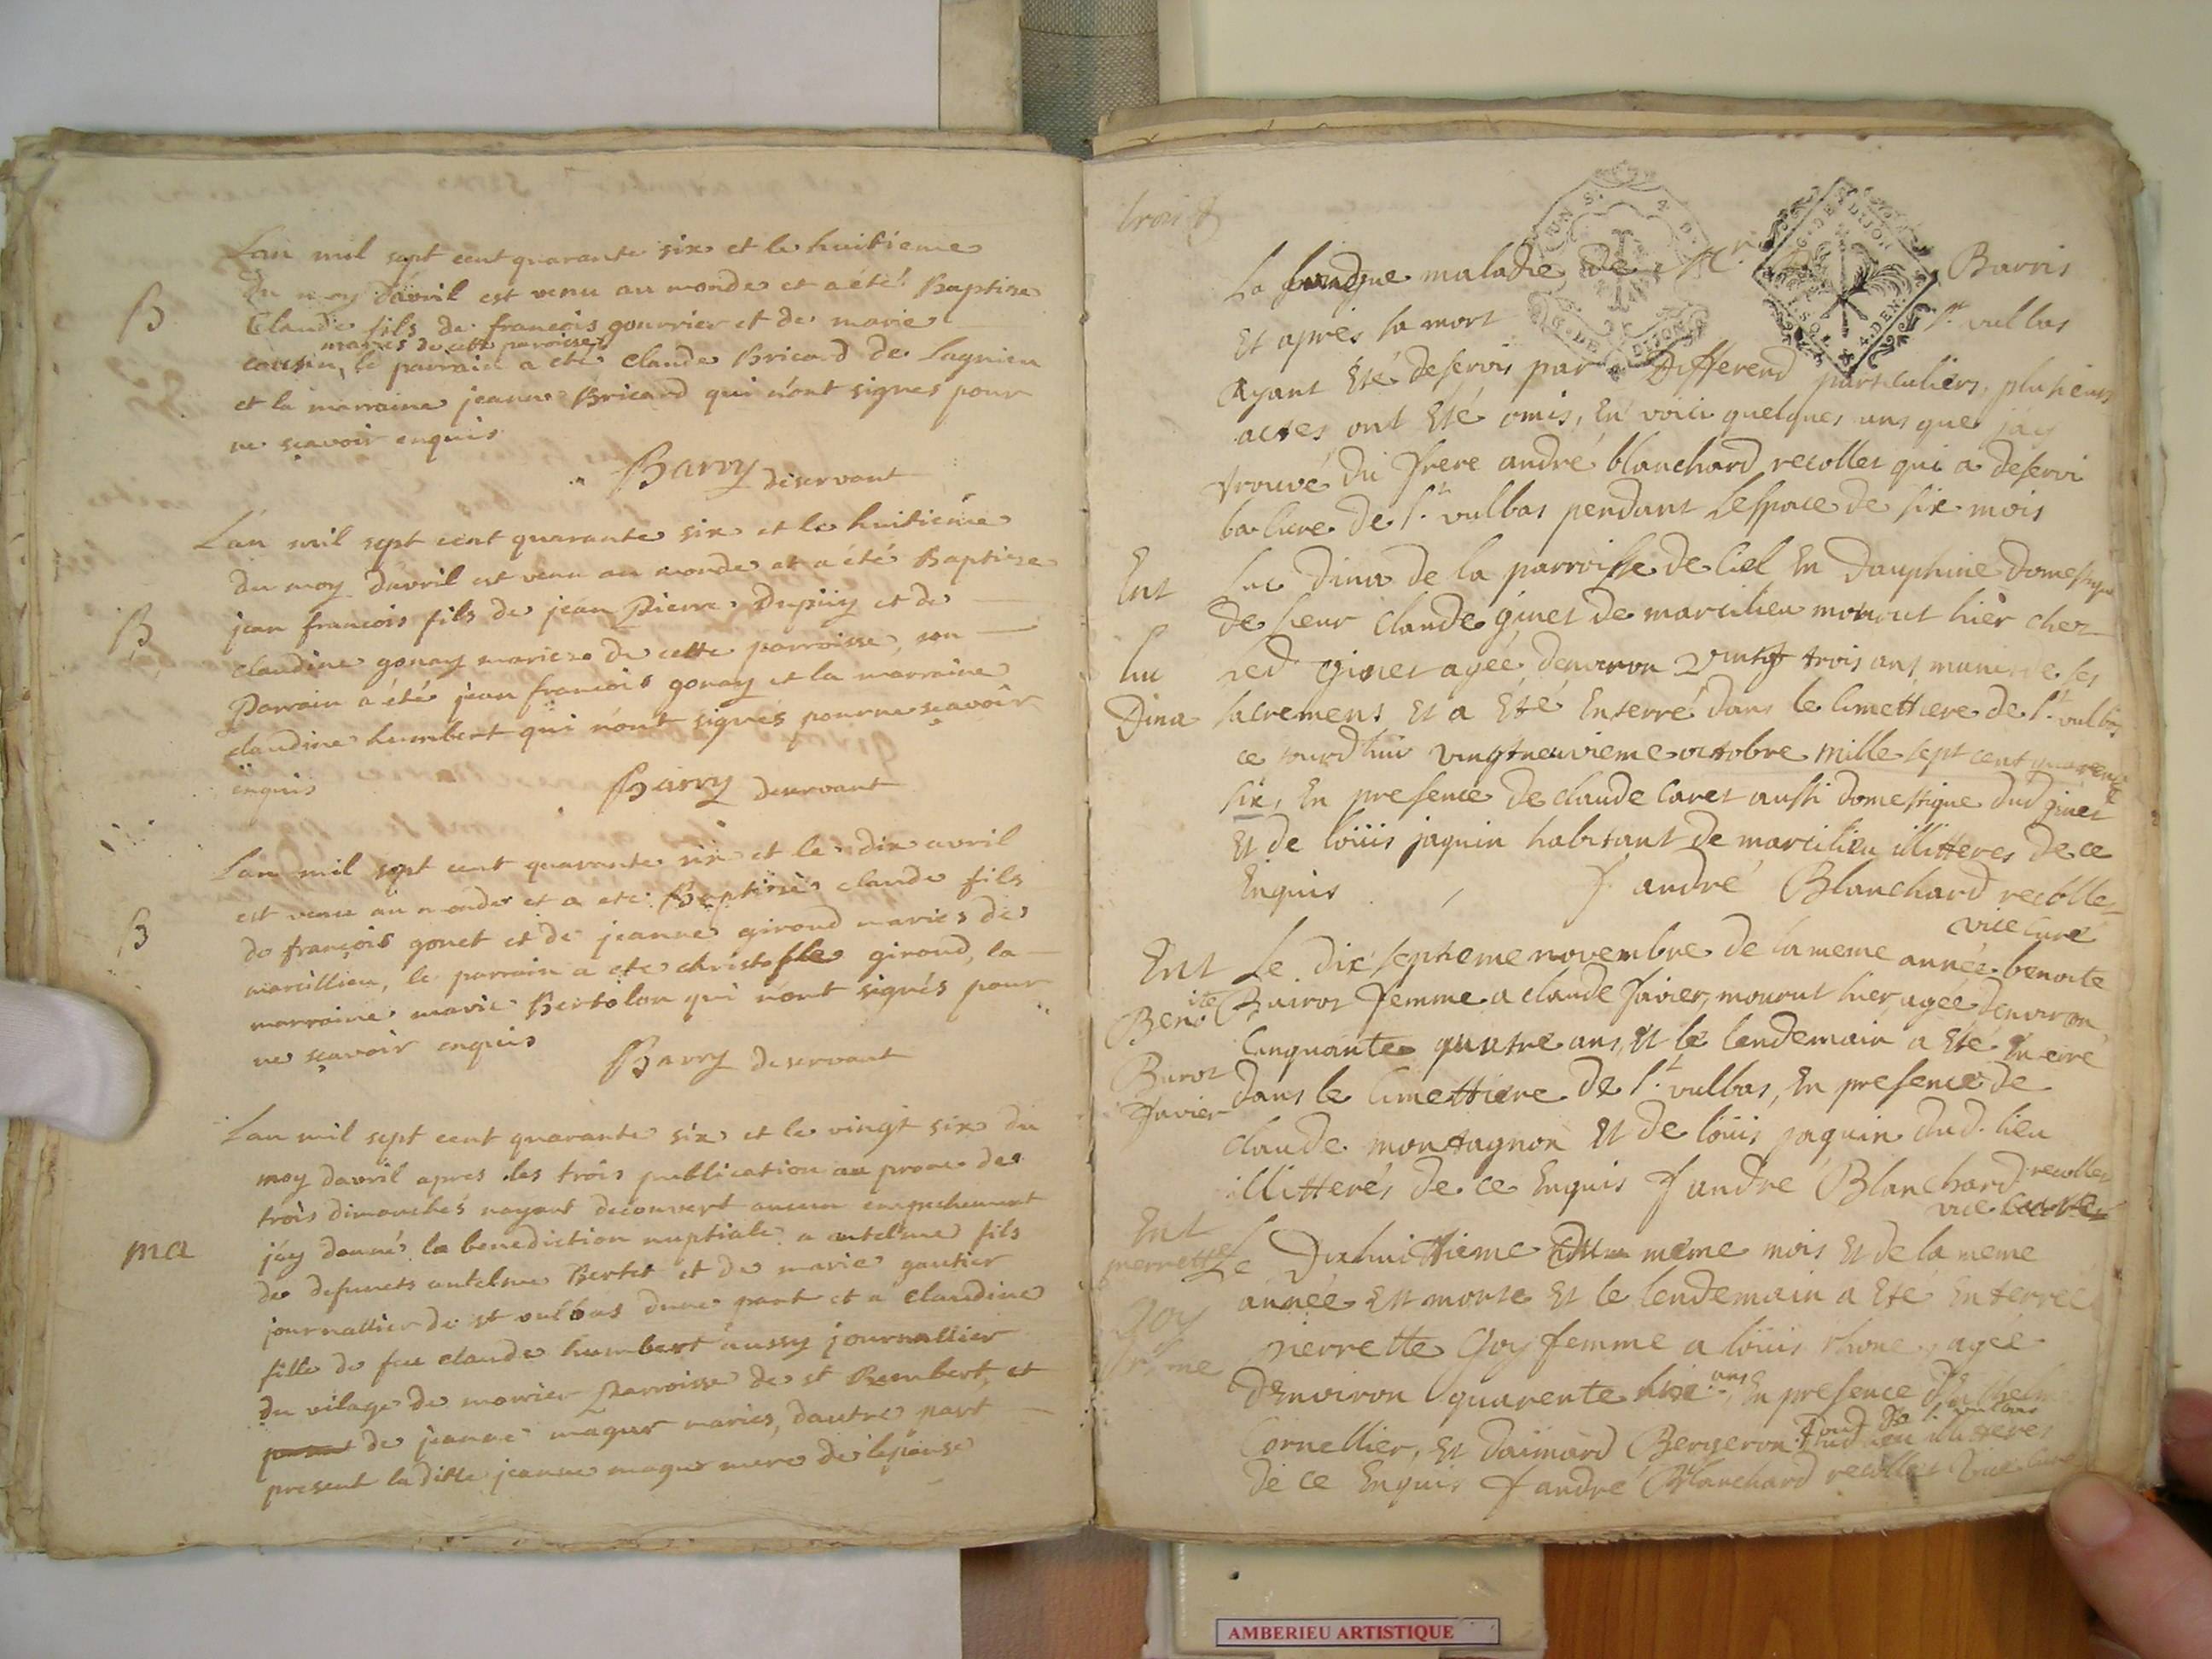 B
Lan mil sept cent quarante six et le huitieme
du moy davril est venu au monde et a été Baptise
Claude fils de francois gourrier et de marie
maries de cette paroisse
cousin, le parrain a ete claude Bricard de Lagnieu
et la marraine jeanne Bricard qui n'ont signes pour
ne sçavoir enquis
Barry deservant
B
L'an mil sept cent quarante six et le huitieme
du moy davril est venu au monde et a été Baptise
jean francois fils de jean Pierre Dupuy et de
claudine gonay maries de cette parroisse, son
Parrain a été jean francois gonay et la marraine
claudine humbert qui n'ont signés pour ne sçavoir
enquis
Barry deservant
B
Lan mil sept cent quarante six et le dix avril
est venu au monde et a ete Baptise claude fils
de françois gonet et de jeanne giroud maries de
marcillieu, le parrain a ete christofle giroud, la
marraine marie Bertolon qui n'ont signés pour
ne sçavoir enquis
Barry deservant
ma
Lan mil sept cent quarante six et le vingt six du
moy davril apres les trois publication au prone de
trois dimanches nayant decouvert aucun empechement
j'ay donné la benediction nuptiale a antelme fils
de defuncts antelme Bertet et de marie gautier
journallier de st vulbas dune part et a claudine
fille de feu claude humbert aussy journallier
du vilage de morrier Parroisse de st Rembert, et
de jeanne magur maries, dautre part
present laditte jeanne magur mere de lepouse
trois
La longue maladie de Mr. Barris
Et apres sa mort St. vulbas
Ayant Eté deservis par Differend particuliers, plusieurs
actes ont Eté omis, En voici quelques uns que jay
trouvé du frere andré blanchard recollet qui a deservi
la cure de St. vulbas pendant Lespace de six mois
Ent
luc
Dina
Luc Dina de la parroisse de Ciel En Dauphine Domestique
de sieur Claude ginet de marcilieu mourut hier chez
led. ginet agée denviron vingt trois ans muni de ses
sacremens Et a Eté Enterré dans le Cimettiere de St. vulbas
ce jourd'huy vingtneuvieme octobre mille sept cent quarente
six, En presence de claude Caret aussi domestique dud ginet
Et de loüis jaquin habitant de marcilieu illitteres de ce
Enquis f. andré Blanchard recollet
vice Curé
Ent
Benoite
Burot
Javier
Le dix septieme novembre de la meme année benoite
Buirot femme a claude Javier, mourut hier, agée denviron
Cinquante quatre ans, Et le lendemain a Eté Enterré
dans le Cimettiere de St. vulbas, En presence de
claude montagnon Et de loüis jaquin dud. lieu
illitterés de ce Enquis f andré Blanchard recollet
vice curé
Ent
pierrette
Goy
Le Dixhuittieme meme mois Et de la meme
année Est morte Et le lendemain a Eté Enterrée
pierrette Goy femme a loüis rhone, agée
d'Environ quarente six ans, En presence
Cornellier, Et Daimard Bergeron illitteres
de ce Enquis f andré Blanchard recollet vice Curé
AMBERIEU ARTISTIQUE